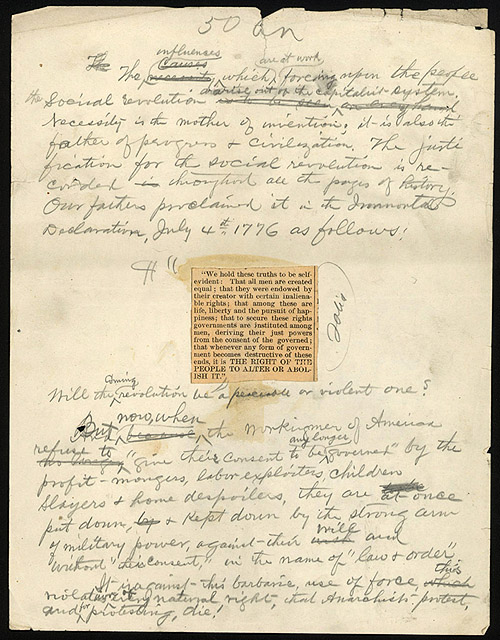 50 an
influences
causes are at work
The The necessity, which, forcing upon the people
the Social revolution arise out of the capitalist system.
Necessity is the mother of invention; it is also the
father of progress & civilization. The justi
fication for the social revolution is re-
corded in throughout all the pages of history.
Our fathers proclaimed it in the Immortal
Declaration, July 4th, 1776 as follows:
"We hold these truths to be self-
evident: That all men are created
equal; that they were endowed by
their creator with certain inaliena-
ble rights; that among these are
life, liberty and the pursuit of hap-
piness; that to secure these rights
governments are instituted among
men, deriving their just powers
from the consent of the governed;
that whenever any form of govern-
ment becomes destructive of these
ends, it is THE RIGHT OF THE
PEOPLE TO ALTER OR ABOL-
ISH IT."
Italic
coming
Will the revolution be a peaceable or violent one?
now, when
But, the workingmen of America
refuse to any longer
no longer "give their consent to be governed" by the
profit-mongers, labor exploiters, children
slayers & home despoilers, they are at once
put down, & kept down by the strong arm
will
of military power, against their wish and
"without their consent," in the name of "law & order".
It is against this barbaric use of force, which this
violation of every natural right, that Anarchists protest,
and for protesting, die!